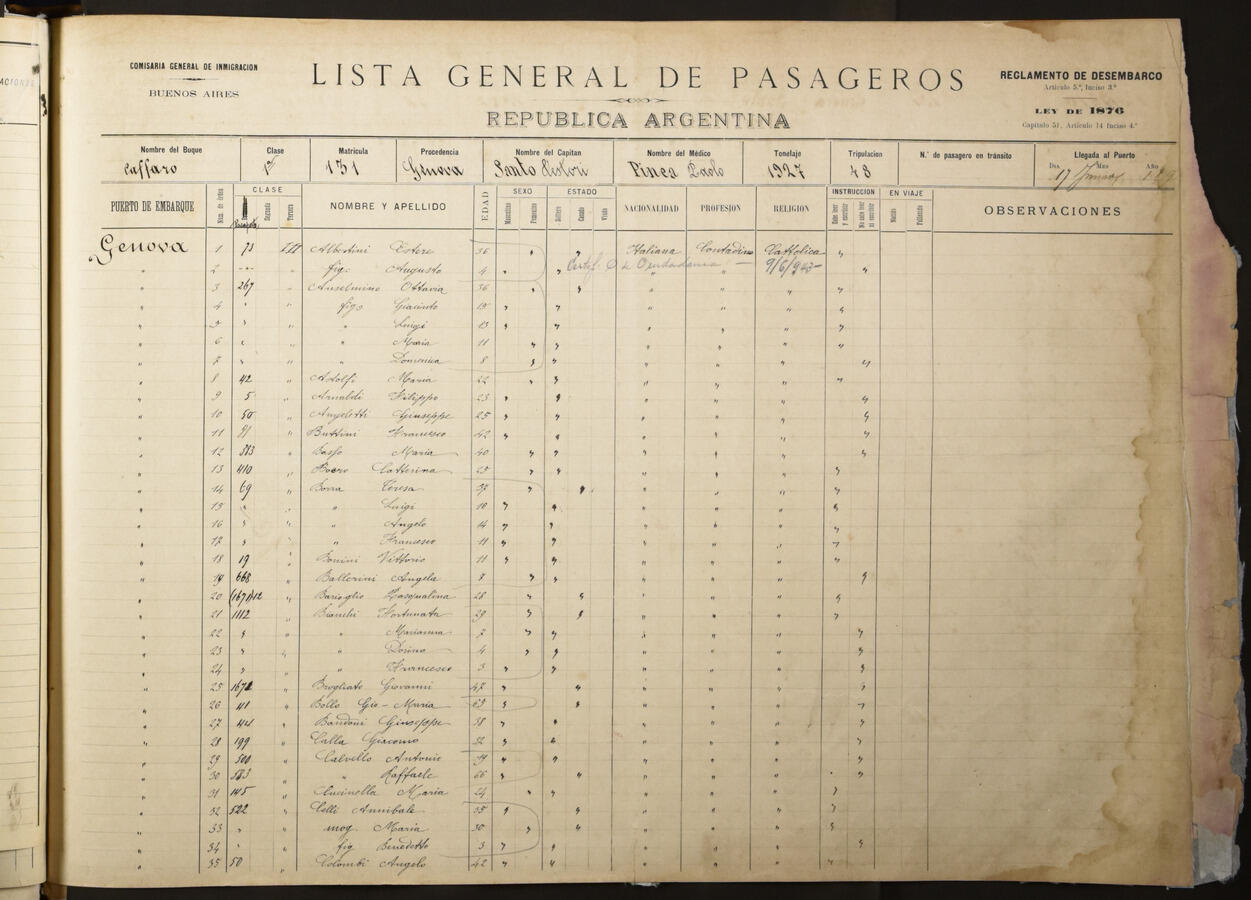 COMISARIA GENERAL DE INMIGRACION
BUENOS AIRES
LISTA GENERAL DE PASAGEROS
REPUBLICA ARGENTINA
REGLAMENTO DE DESEMBARCO
Artículo 5.º, Inciso 3.º
LEY DE 1876
Capítulo 51, Artículo 14 Inciso 4.º
Nombre del Buque Clase Matrícula Procedencia Nombre del Capitan Nombre del Médico Tonelaje Tripulacion N.º de pasagero en tránsito Llegada al Puerto
Dia Mes Año
Caffaro 1ª 131 Genova Santo Pinea Paolo 1927 48 17
PUERTO DE EMBARQUE Núm. de órden CLASE Segunda Tercera NOMBRE Y APELLIDO EDAD SEXO Masculino Femenino ESTADO Soltero Casado Viudo NACIONALIDAD PROFESION RELIGION INSTRUCCION EN VIAJE OBSERVACIONES
Genova 1 73 III Albertini Estere 36 " " Italiana Contadino Cattolica "
" 2 " fig. Augusto 4 " " Certif. de Ciudadania 9/6/943 "
" 3 267 " Anselmino Ottavia 36 " " " " " "
" 4 " " figo Giacinto 19 " " " " " "
" 5 " " " Luigi 13 " " " " " "
" 6 " " " Maria 11 " " " " " "
" 7 " " " Domenica 8 " " " " " "
" 8 42 " Adolfi Maria 22 " " " " " "
" 9 5 " Arnaldi Filippo 23 " " " " " "
" 10 50 " Angeletti Giuseppe 25 " " " " " "
" 11 81 " Buttini Francesco 42 " " " " " "
" 12 " Basso Maria 40 " " " " " "
" 13 410 " Boero Catterina 25 " " " " " "
" 14 69 " Borra Teresa 37 " " " " " "
" 15 " " " Luigi 10 " " " " " "
" 16 " " " Angelo 14 " " " " " "
" 17 " " " Francesco 11 " " " " " "
" 18 19 " Bonini Vittorio 11 " " " " " "
" 19 668 " Ballerini Angela 7 " " " " " "
" 20 (1671)12 " Barioglio Pasqualina 28 " " " " " "
" 21 1112 " Bianchi Fortunata 29 " " " " " "
" 22 " " " Marianna 7 " " " " " "
" 23 " " " Dosino 4 " " " " " "
" 24 " " " Francesco 3 " " " " " "
" 25 1672 " Brogliato Giovanni 47 " " " " " "
" 26 " Bollo Gio-Maria 63 " " " " " "
" 27 44 " Bandoni Giuseppe 38 " " " " " "
" 28 199 " Calla Giacomo 32 " " " " " "
" 29 500 " Calvello Antonio 39 " " " " " "
" 30 583 " " Raffaele 66 " " " " " "
" 31 145 " Cucinella Maria 24 " " " " " "
" 32 522 " Celli Annibale 35 " " " " " "
" 33 " " mog. Maria 30 " " " " " "
" 34 " " fig Benedetto 3 " " " " " "
" 35 50 " Colombi Angelo 42 " " " " " "